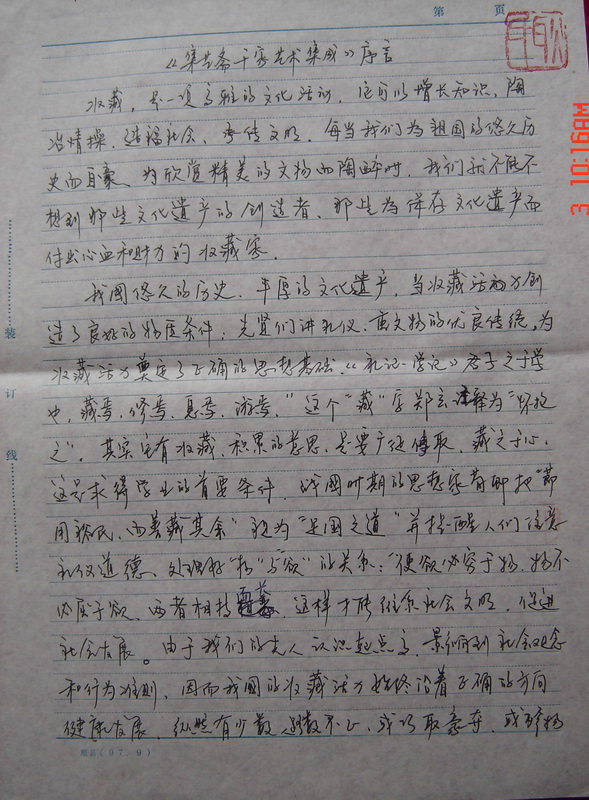 第 页
《集艺斋千家艺术集成》序言
收藏，是一项高雅的文化活动，它可以增长知识，陶
冶情操，造福社会，传传文明。每当我们为祖国的悠久历
史而自豪、为欣赏精美的文物而陶醉时，我们就不能不
想到那些文化遗产的创造者，那些为保存文化遗产而
付出心血和财力的收藏家。
我国悠久的历史、丰厚的文化遗产，为收藏活动创
造了良好的物质条件；先贤们讲礼仪、重文物的优良传统，为
收藏活动奠定了正确的思想基础。《礼记·学记》君子之于学
也，藏焉，修焉，息焉，游焉，"这个"藏"字郑玄注释为"怀抱
之"，其实它有收藏、积累的意思，是要广征博取，藏之于心，
这是求得学业的首要条件。战国时期的思想家荀卿把"节
用裕民，而善藏其余"视为"足国之道"并提醒人们注意
礼仪道德、处理好"物"与"欲"的关系："使欲必不穷于物，物不
必屈于欲，两者相持 ，这样才能维系社会文明，促进
社会发展。由于我们的先人认识起点高，影响到社会观念
和行为准则，因而我国的收藏活动始终沿着正确的方向
健康发展，纵然有少数 不止，或巧取豪夺，或
装
订
线
(07.9)
3 10:16AM